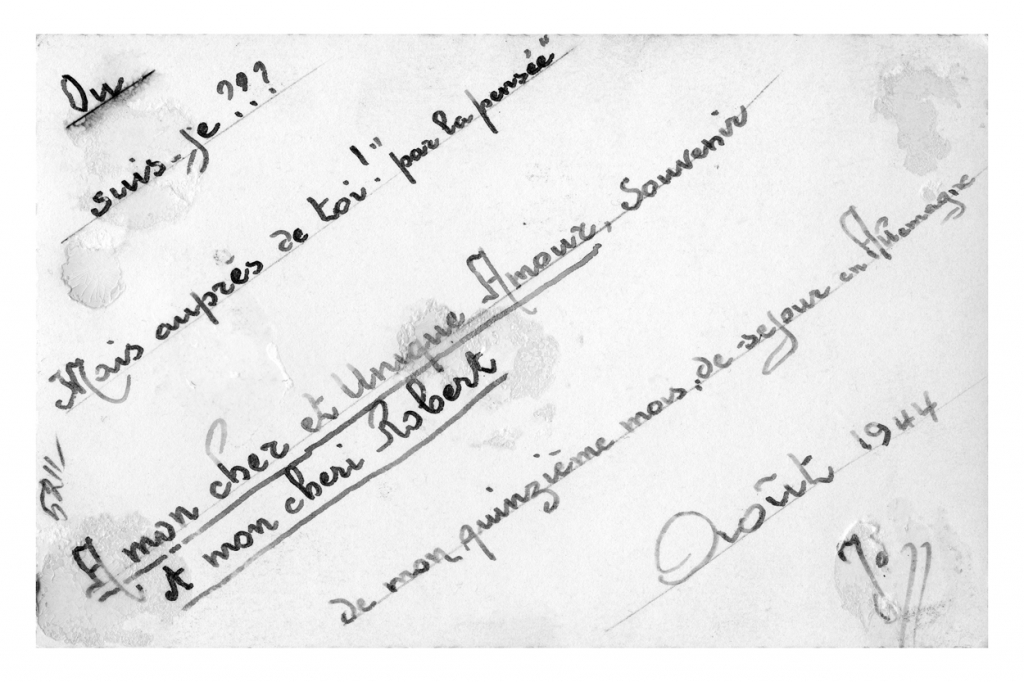 Ou
suis-je???
Mais auprès de toi!" par la pensée"
A mon cher et Unique Amour, Souvenir
A mon cheri Robert
de mon quinzième mois, de sejour en Allemagne
Août 1944